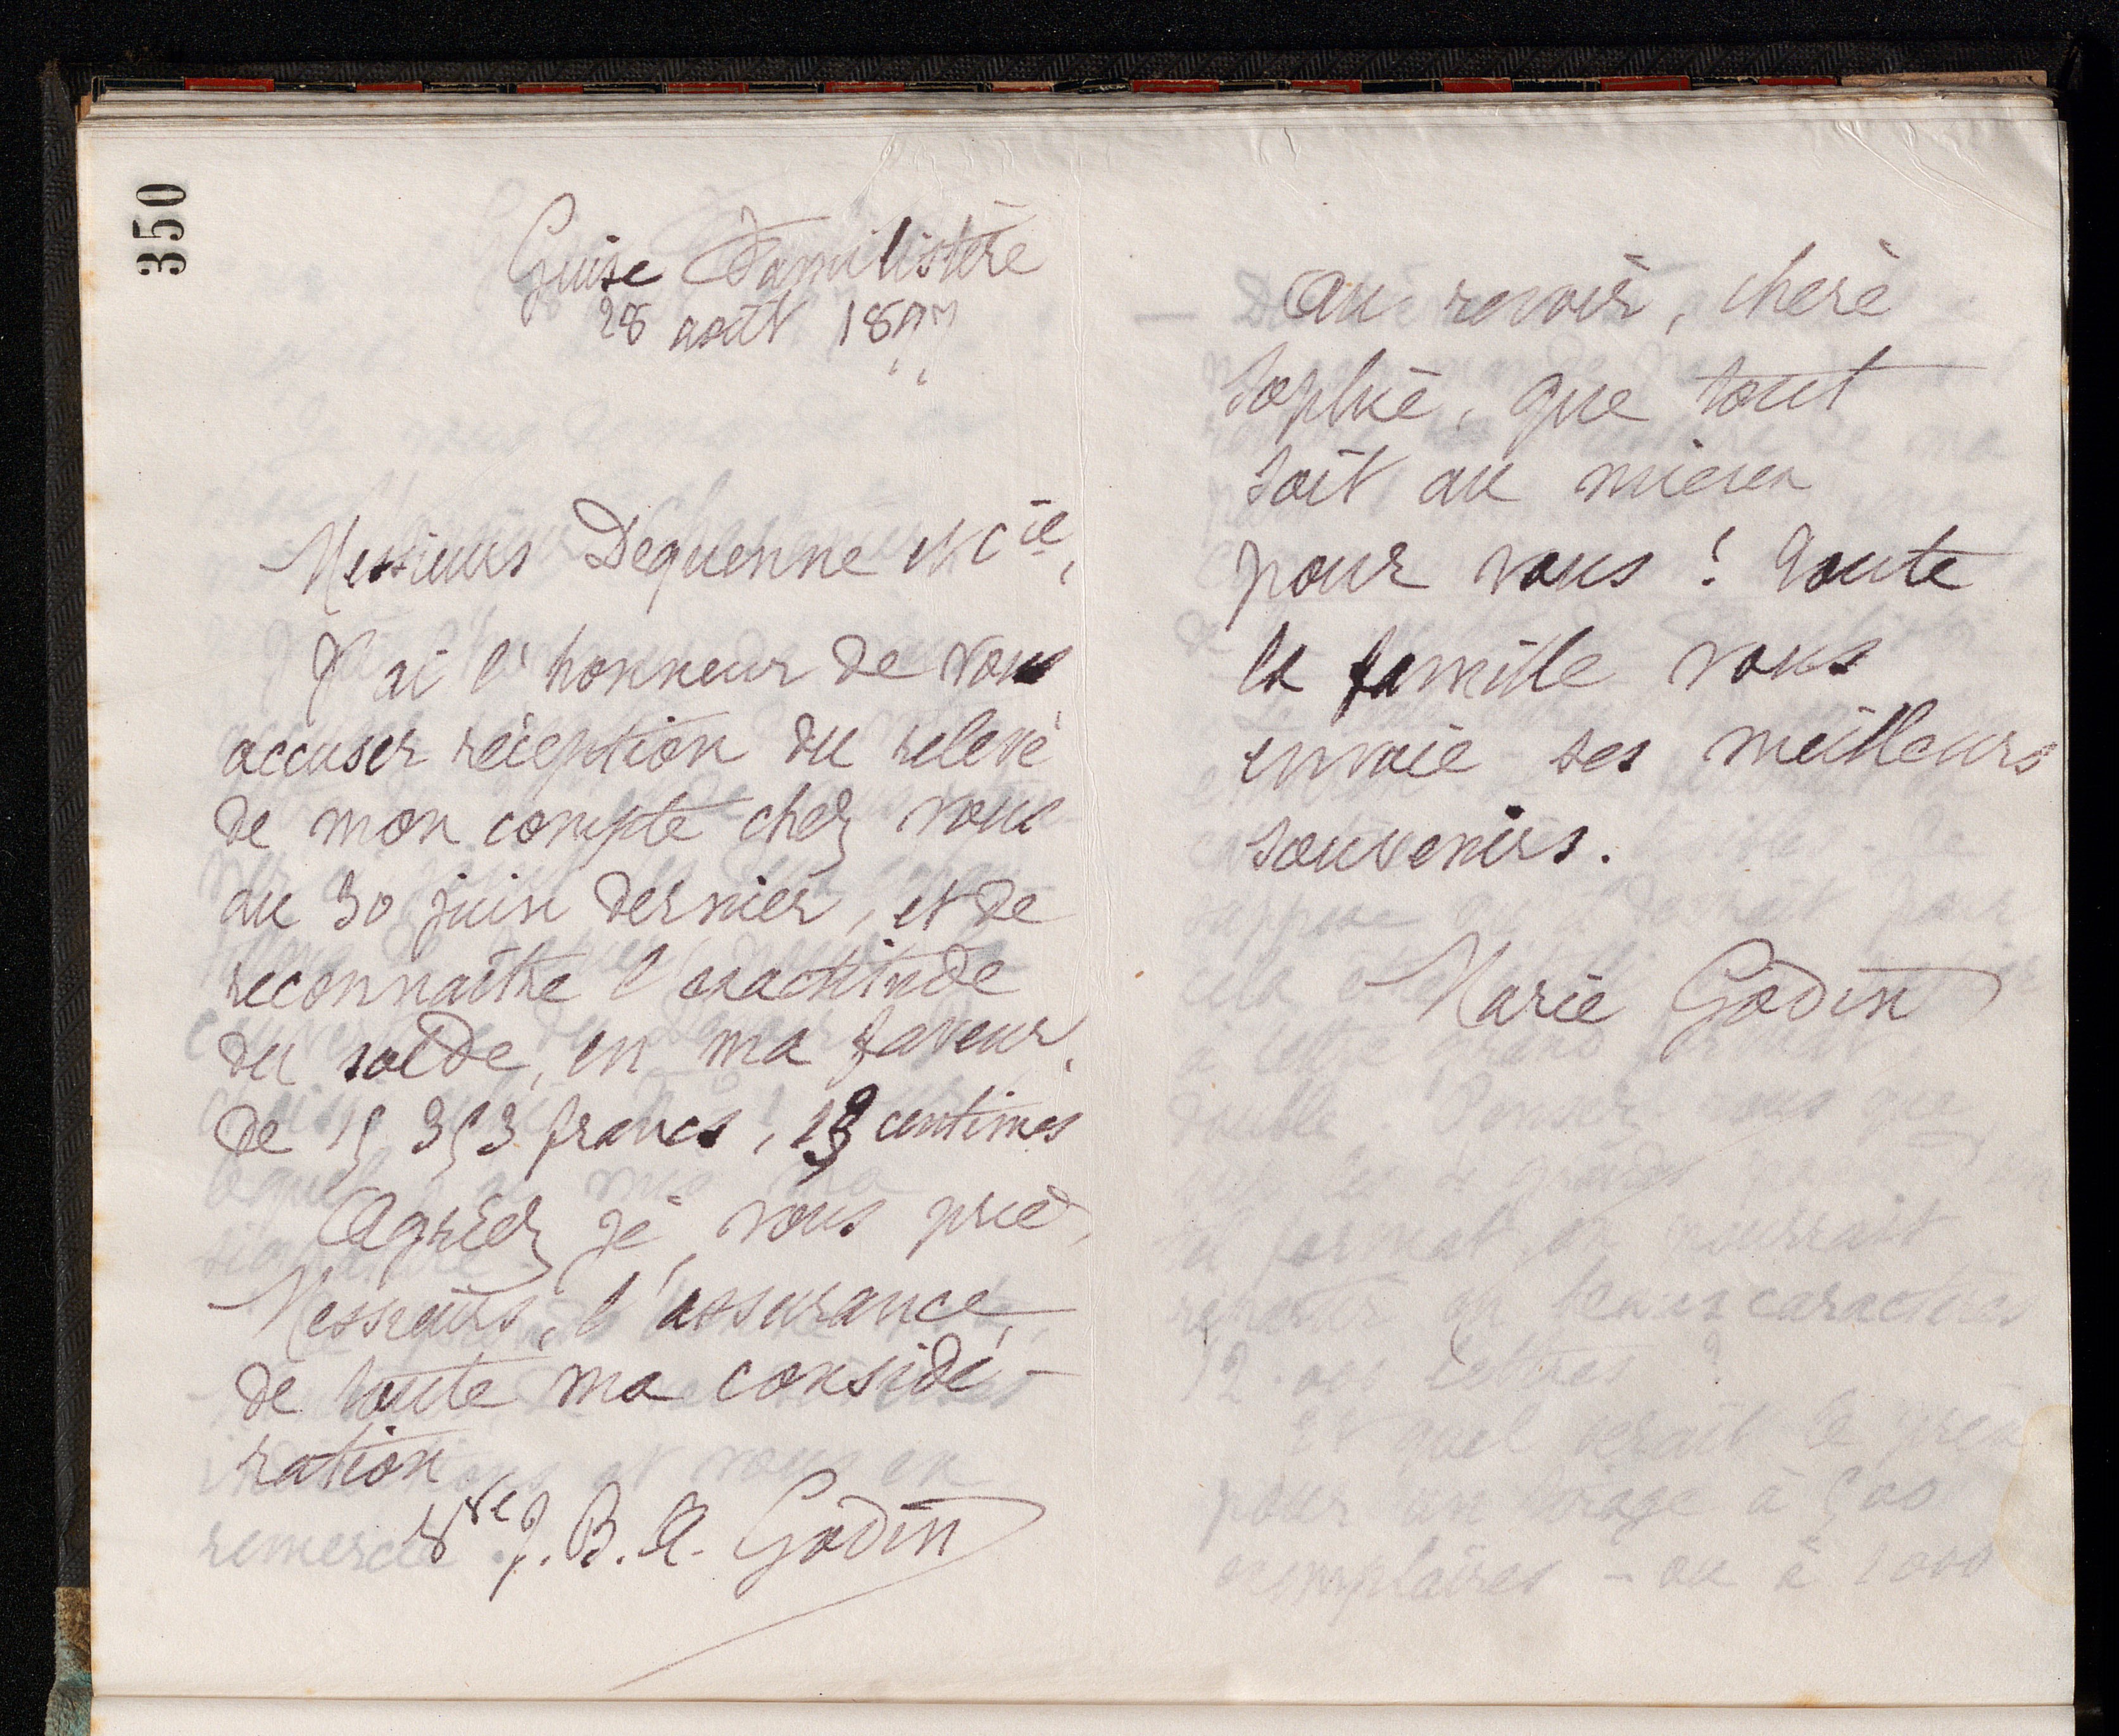 350
Guise Familistère
28 août 1897
Messieurs Dequenne et Cie,
J'ai l'honneur de vous
accuser réception du relevé
de mon compte chez vous
au 30 juin dernier, et de
reconnaître l'exactitude
du solde, en ma faveur,
de 15 353 francs, centimes
Agréez, je vous prie,
Messieurs, l'assurance
de toute ma considé-
ration
Vve J. B. A. Godin
Au revoir, chère
Sophie, que tout
soit au mieux
pour vous ! Toute
la famille vous
envoie ses meilleurs
souvenirs.
Marie Godin